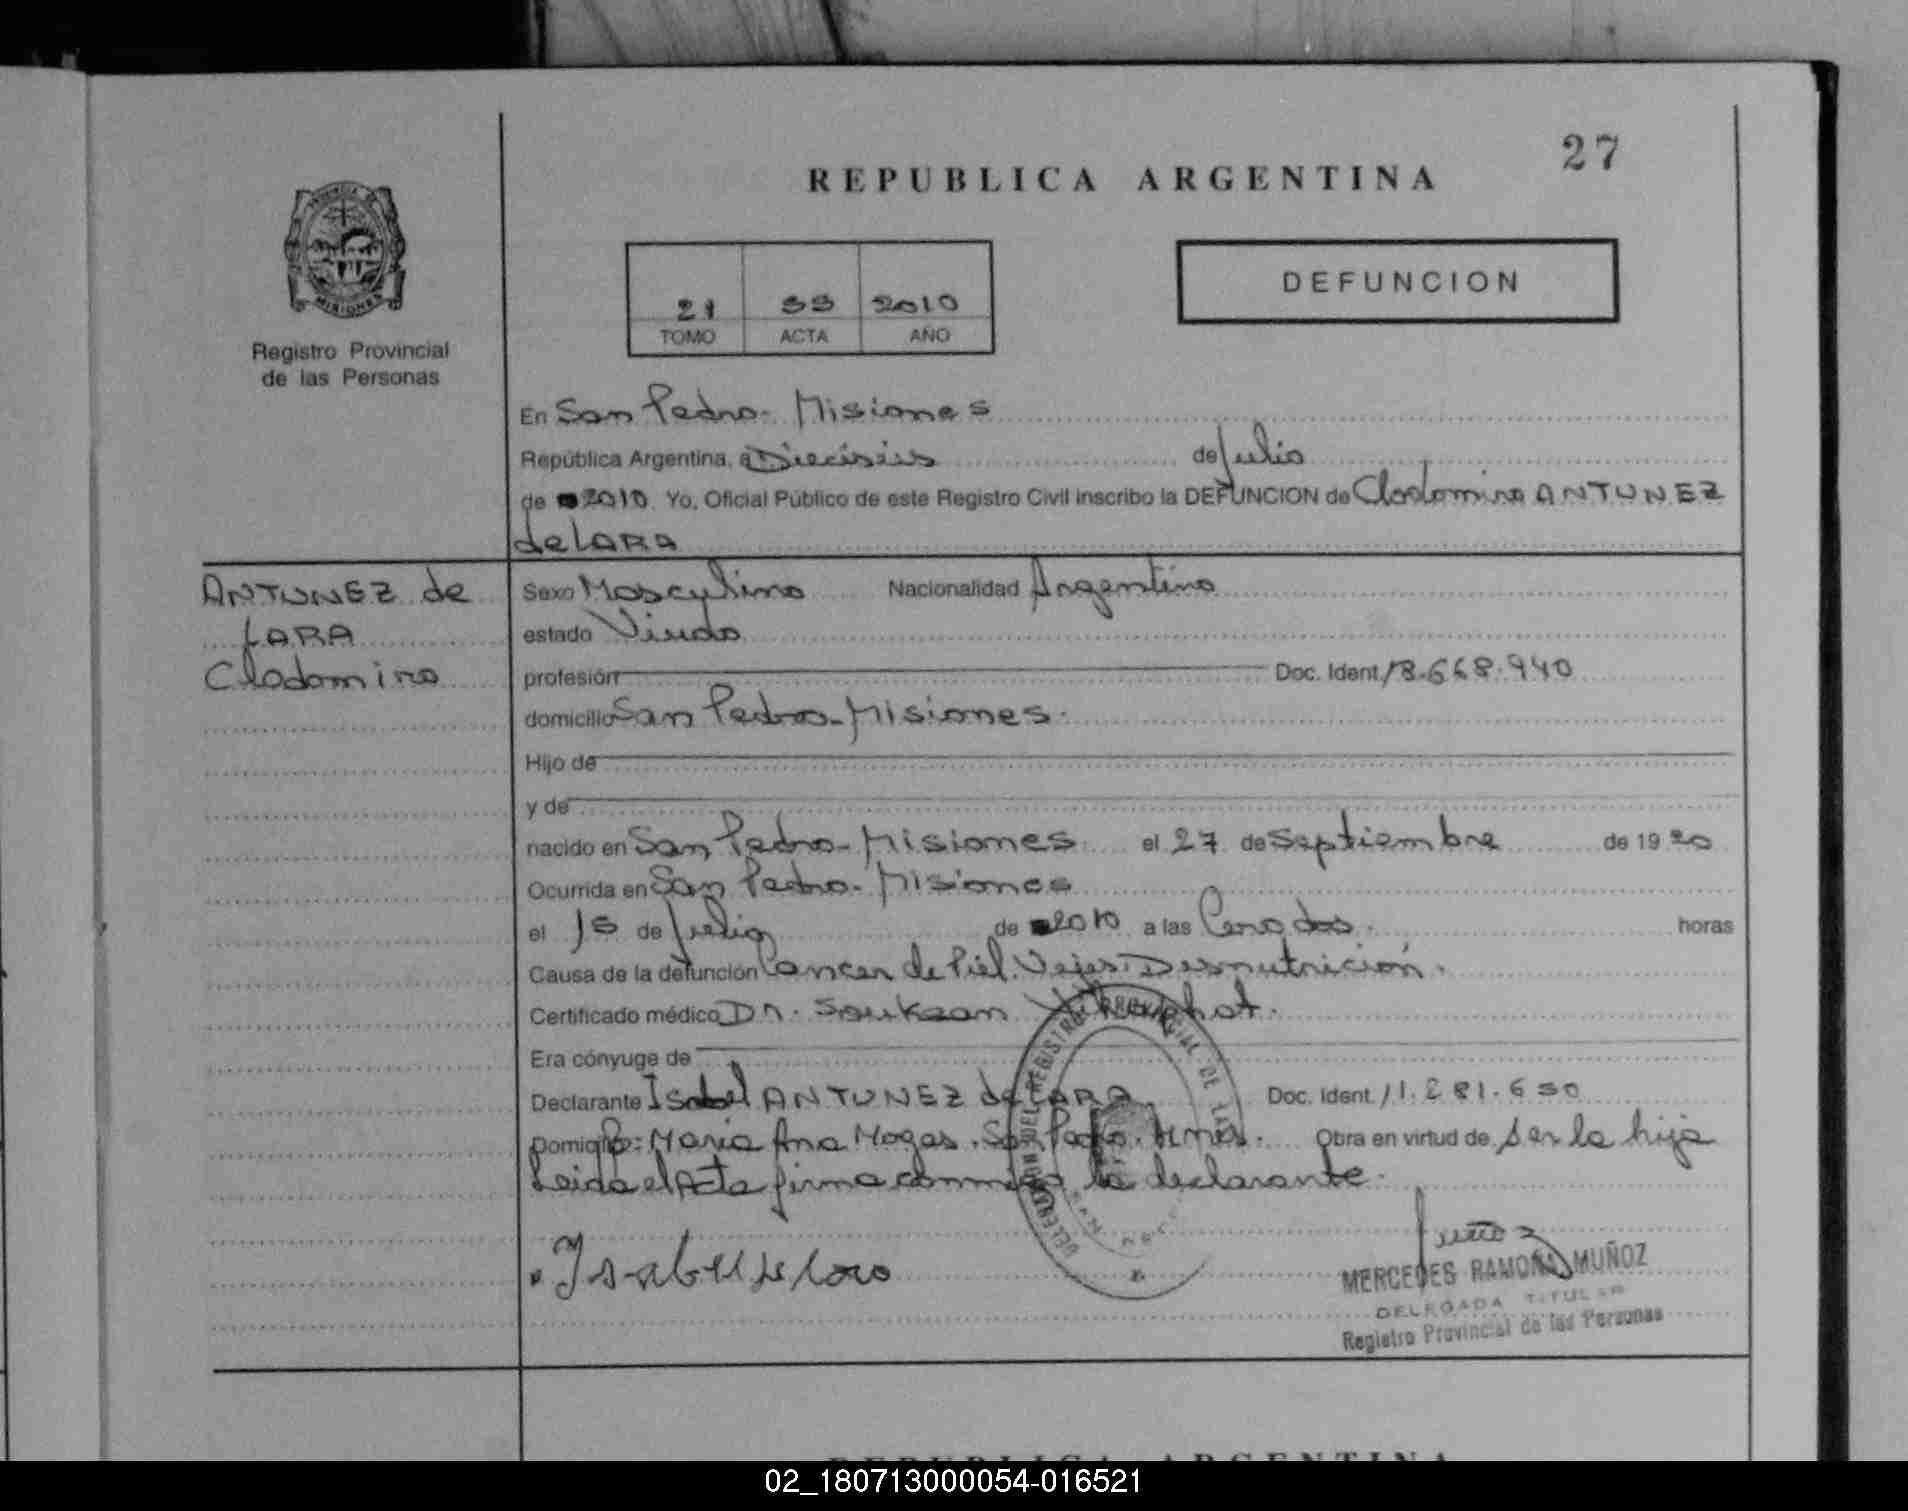 27
REPUBLICA ARGENTINA
PROVINCIA DE
MISIONES
Registro Provincial
de las Personas
21 2010
TOMO ACTA AÑO
DEFUNCION
En San Pedro - Misiones
República Argentina, a Dieciséis de Julio
de 2010 Yo, Oficial Público de este Registro Civil inscribo la DEFUNCION de Clodomiro ANTUNEZ
de LARA
ANTUNEZ de
LARA
Clodomiro
Sexo Masculino Nacionalidad Argentino
estado Viudo
profesión Doc. Ident. 18.668.940
domicilio San Pedro - Misiones.
Hijo de
y de
nacido en San Pedro - Misiones el 27 de Septiembre de 1920
Ocurrida en San Pedro - Misiones
el 15 de Julio de 2010 a las Cero dos. horas
Causa de la defunción Cancer de Piel. Vejes. Desnutrición.
Certificado médico Dr. Souksan
Era cónyuge de
Declarante Isabel ANTUNEZ de LARA. Doc. Ident. 11.281.650
Domicilio: Maria Ana Mogas. San Pedro. Mnes. Obra en virtud de ser la hija
Leida el Acta firma conmigo la declarante.
DELEGACION DEL REGISTRO PROVINCIAL DE LAS
Isabel de lara
MERCEDES RAMONA MUÑOZ
DELEGADA TITULAR
Registro Provincial de las Personas
REPUBLICA ARGENTINA
02_180713000054-016521